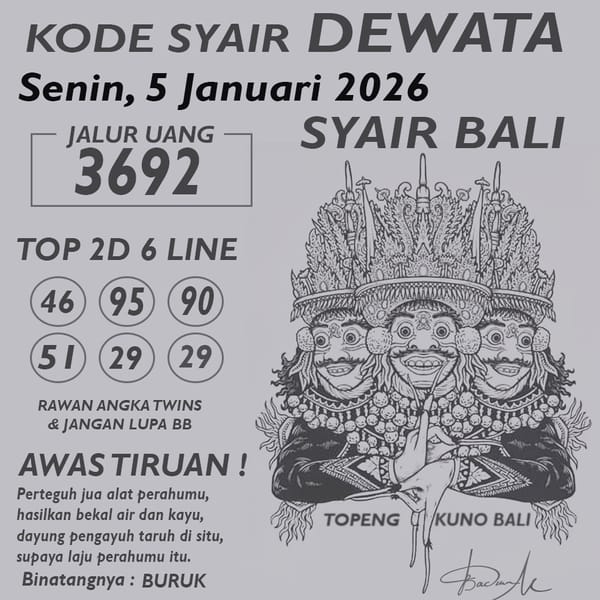 KODE SYAIR DEWATA
Senin, 5 Januari 2026
SYAIR BALI
JALUR UANG
3692
TOP 2D 6 LINE
46 95 90
51 29 29
RAWAN ANGKA TWINS
& JANGAN LUPA BB
AWAS TIRUAN !
Perteguh jua alat perahumu,
hasilkan bekal air dan kayu,
dayung pengayuh taruh di situ,
supaya laju perahumu itu.
Binatangnya : BURUK
TOPENG KUNO BALI